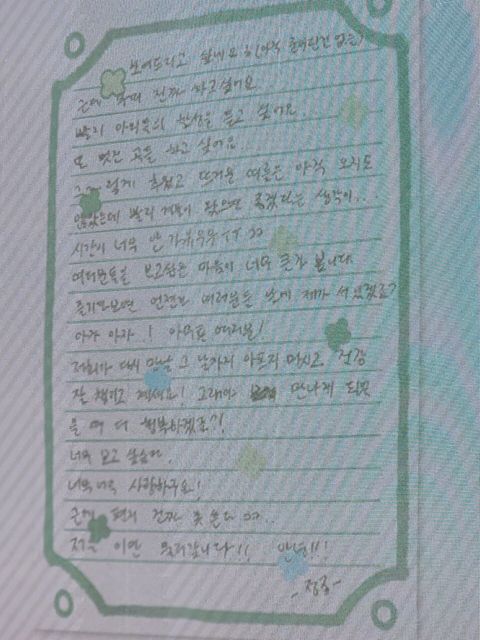 보여드리고 싶네요ㅎ(아직 준비된건 없는)
근데 진짜 하고싶어요
빨리 아미들의 함성을 듣고 싶어요.
또 멋진 곡을 하고 싶어요.
덥고 뜨거운 여름은 아직 오지도
않았는데 빨리 겨울이 왔으면 좋겠다는 생각이..
시간이 너무 안 가유우우ㅜㅜ
여러분들을 보고싶은 마음이 너무 큰가 봅니다
즐기다보면 언젠가 여러분들 앞에 제가 서 있겠죠?
아자 아자! 아무튼 여러분!
저희가 다시 만날 그 날까지 아프지 마시고 건강
잘 챙기고 계세요! 그래야 만나게 되면
더 행복하겠죠?!
너무 보고 싶습니다.
너무너무 사랑하구요!
근데 편지 진짜 못 쓴다
저는 이만 물러갑니다!! 안녕!!